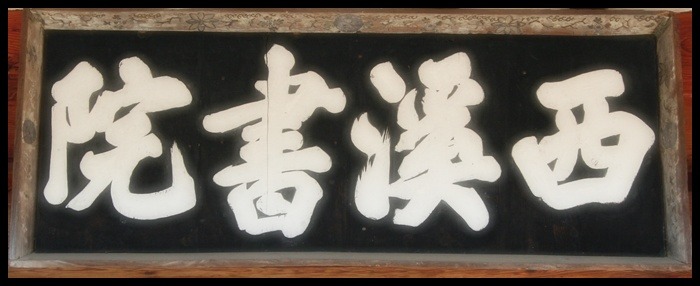 西溪書院